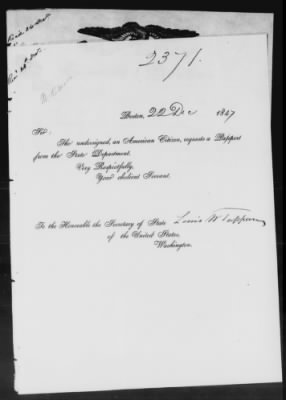 2371.
Boston, 22 Dec 1847
Sir
The undersigned, an American Citizen, requests a Passport
from the State Department.
Very Respectfully,
Your obedient Servant.
Louis W Tappan
To the Honorable the Secretary of State
of the United States,
Washington.